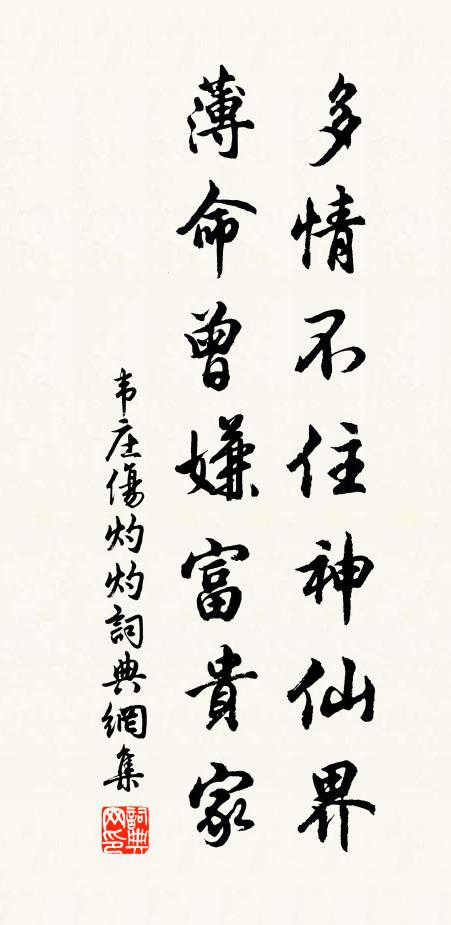 多情不住神仙界
薄命曾嫌富貴家
韦庄傷灼灼詞典網集
詞典网印